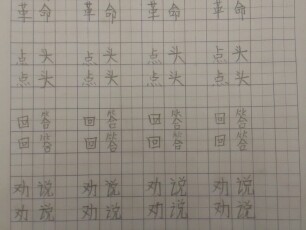 革命 革命 革命 革命
点头 点头 点头 点头
点头 点头 点头 点头
回答 回答 回答 回答
回答 回答 回答 回答
劝说 劝说 劝说 劝说
劝说 劝说 劝说 劝说